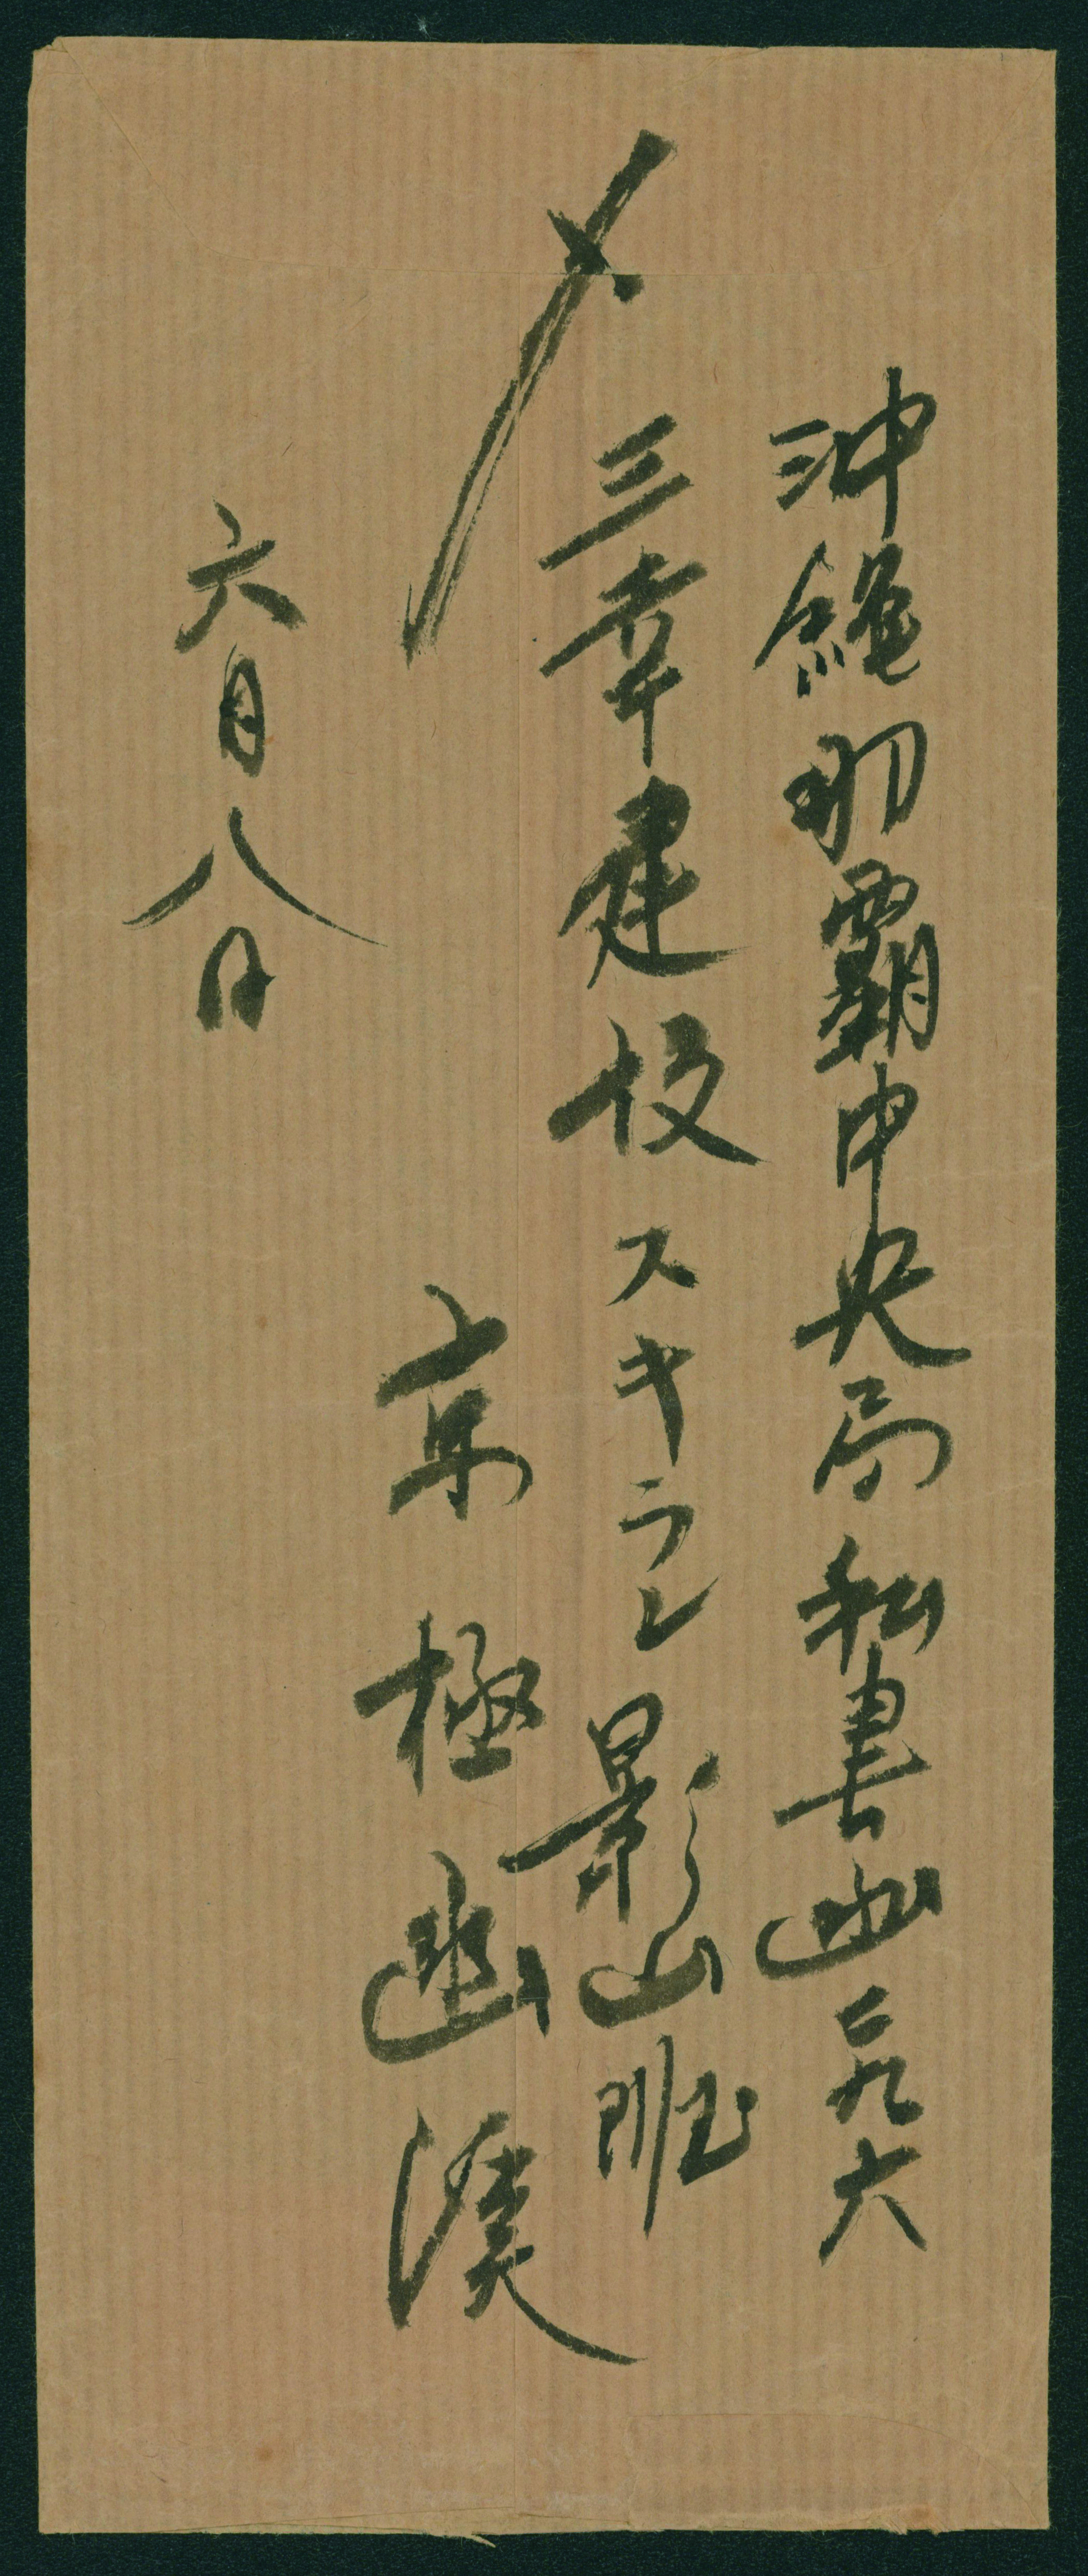 沖縄那覇中央局私書函二九六
〆
三幸建設スキラン影山班
京極幽溪
六月八日